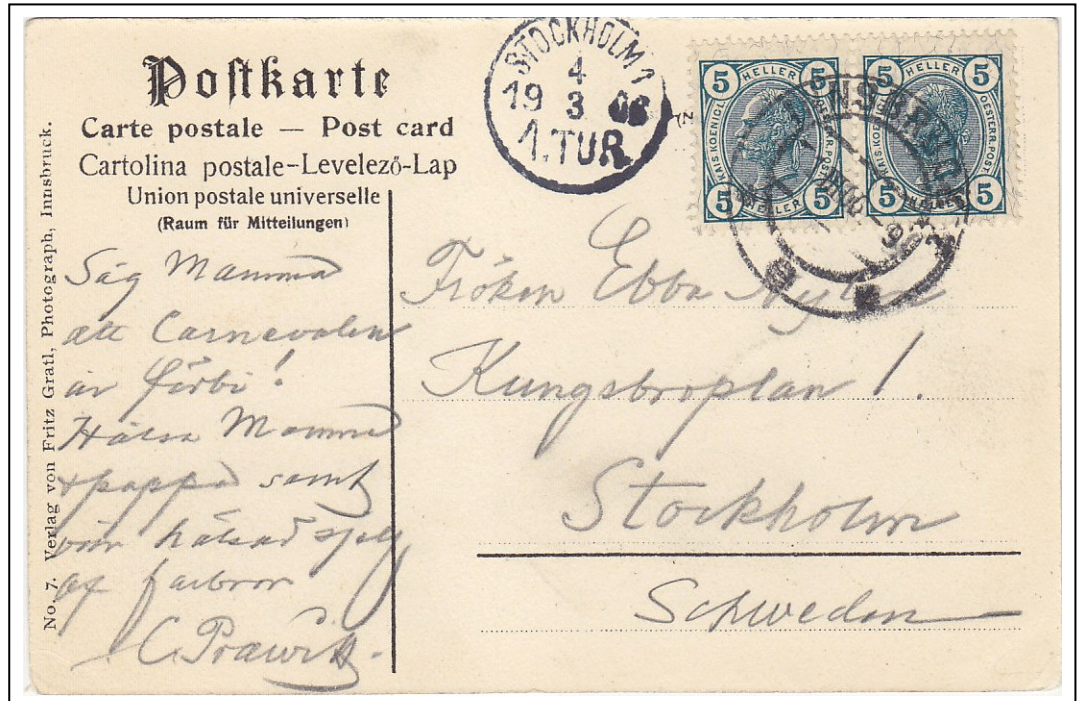 Postkarte
Carte postale — Post card
Cartolina postale-Levelező-Lap
Union postale universelle
(Raum für Mitteilungen)
No. 7. Verlag von Fritz Gratl, Photograph, Innsbruck.
STOCKHOLM 1
4
19 3 06
1. TUR.
5 HELLER 5
KAIS. KOENIGL. OESTERR. POST
5 HELLER 5
5 HELLER 5
KAIS. KOENIGL. OESTERR. POST
5 HELLER 5
Säg Mamma
att Carnevalen
är förbi!
Hälsa Mamma
+ pappa samt
var hälsad sjelf
af farbror
C. Prawitz.
Fröken Ebba
Kungsbroplan 1.
Stockholm
Schweden